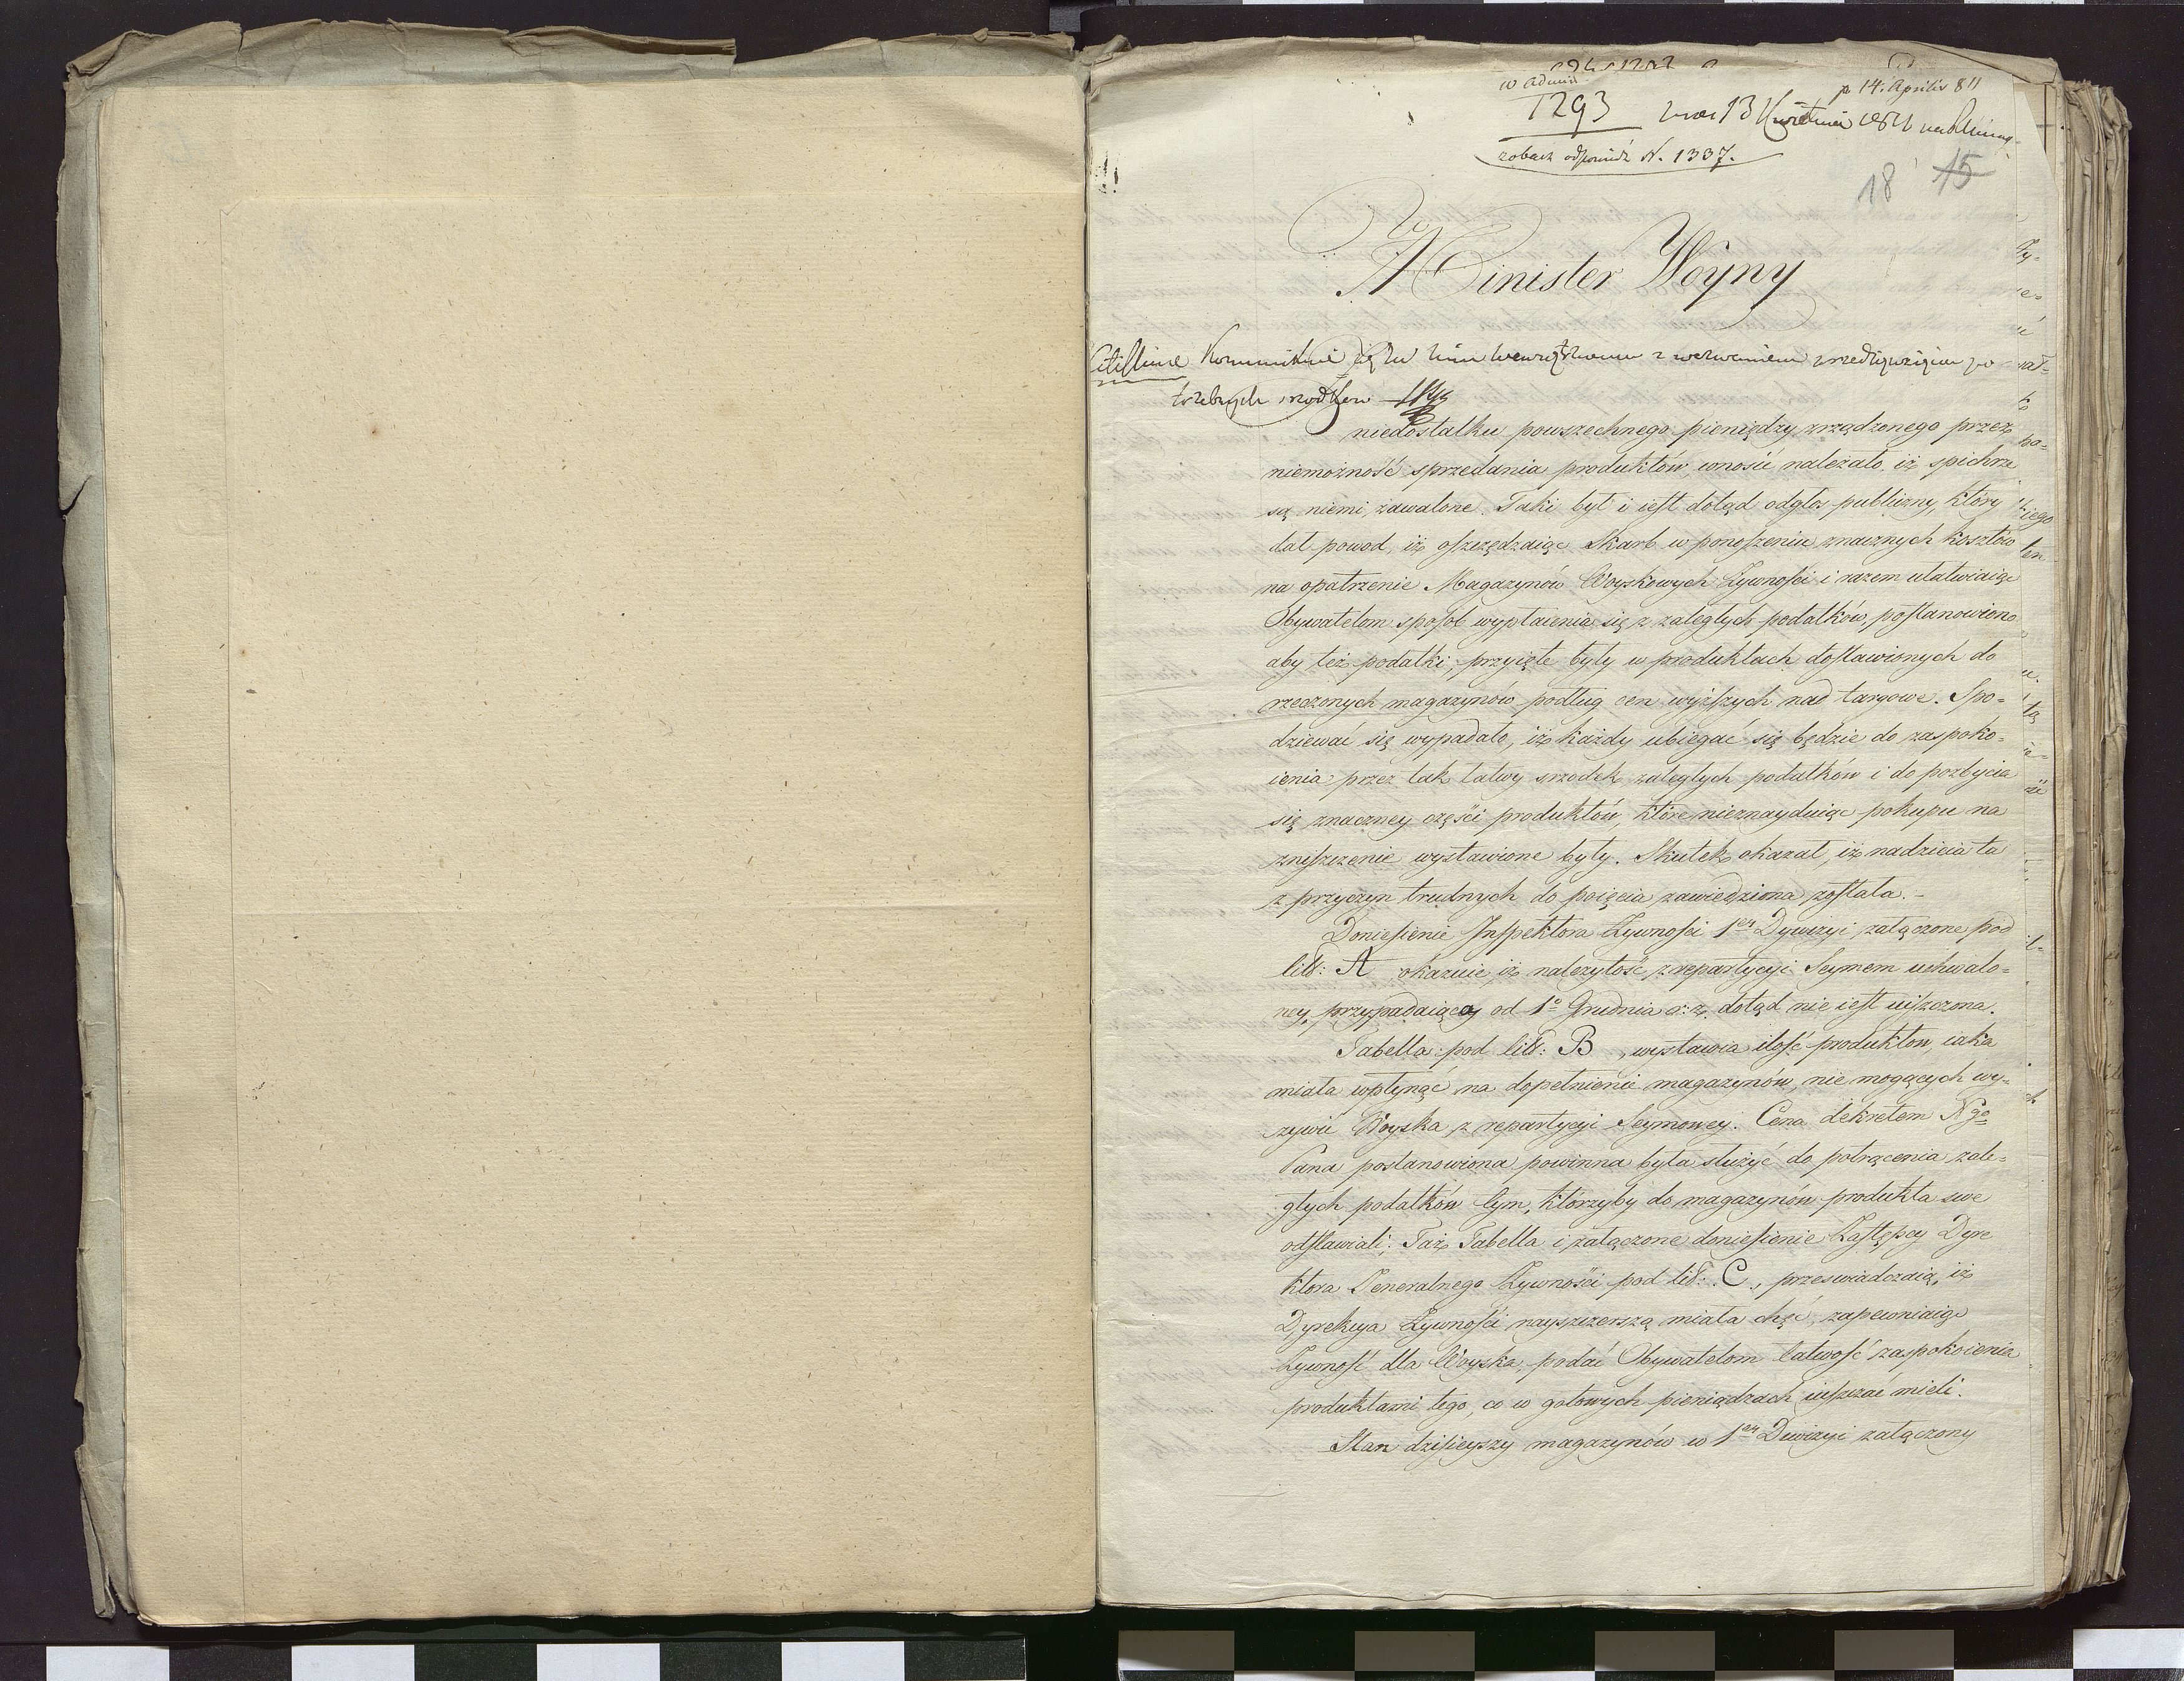 w Admin
1293
p 14. Aprilis 811
13 Kwietnia 1811
zobacz odpowiedz N. 1337.
18 15
Minister Woyny
Citissime Kommunikuie się z wezwaniem przedsięwzięcia po-
trzebnych srodkow
niedostatku powszechnego pieniędzy zrządzonego przez
niemożność sprzedania produktów, wnosić należało iż spichrze
są niemi zawalone. Taki był i iest dotąd odgłos publiczny, który
dał powod, iż oszczędzaiąc Skarb w ponoszeniu znacznych kosztów
na opatrzenie Magazynów Woyskowych Żywności i razem ułatwiaiąc
Obywatelom sposob wypłacenia się z zaległych podatków, postanowiono
aby też podatki, przyięte były w produktach dostawionych do
rzeczonych magazynów podług cen wyższych nad targowe. Spo-
dziewać się wypadało, iż każdy ubiegać się będzie do zaspoko-
ienia przez tak łatwy srzodek zaległych podatków i do pozbycia
się znaczney części produktów, które nieznayduiąc pokupu na
zniszczenie wystawione były. Skutek okazał, iż nadzieia ta
z przyczyn trudnych do poięcia zawiedziona została. -
Doniesienie Inspektora Żywności 1ey Dywizyi załączone pod
litt: A okazuie iż należytość z repartycyi Seymem uchwalo-
ney, przypadaiąca od 1o Grudnia r: z. dotąd nie iest uiszczona.
Tabella pod litt: B, wystawia ilość produktow, iaka
miała wpłynąć na dopełnienie magazynów, nie mogących wy-
żywić Woyska z repartycyi Seymowey. Cena dekretem Ngo
Pana postanowiona powinna była służyć do potrącenia zale-
głych podatków tym, ktorzyby do magazynów produkta swe
odstawiali; Taż Tabella i załączone doniesienie Zastępcy Dyre
ktora Generalnego Żywności pod lit: C, przeswiadczaią, iż
Dyrekcya Żywności nayszczerszą miała chęć, zapewniaiąc
Żywność dla Woyska, podać Obywatelom łatwość zaspokoienia
produktami tego, co w gotowych pieniądzach uiszczać mieli.
Stan dzisieyszy magazynów w 1ey Dywizyi załączony